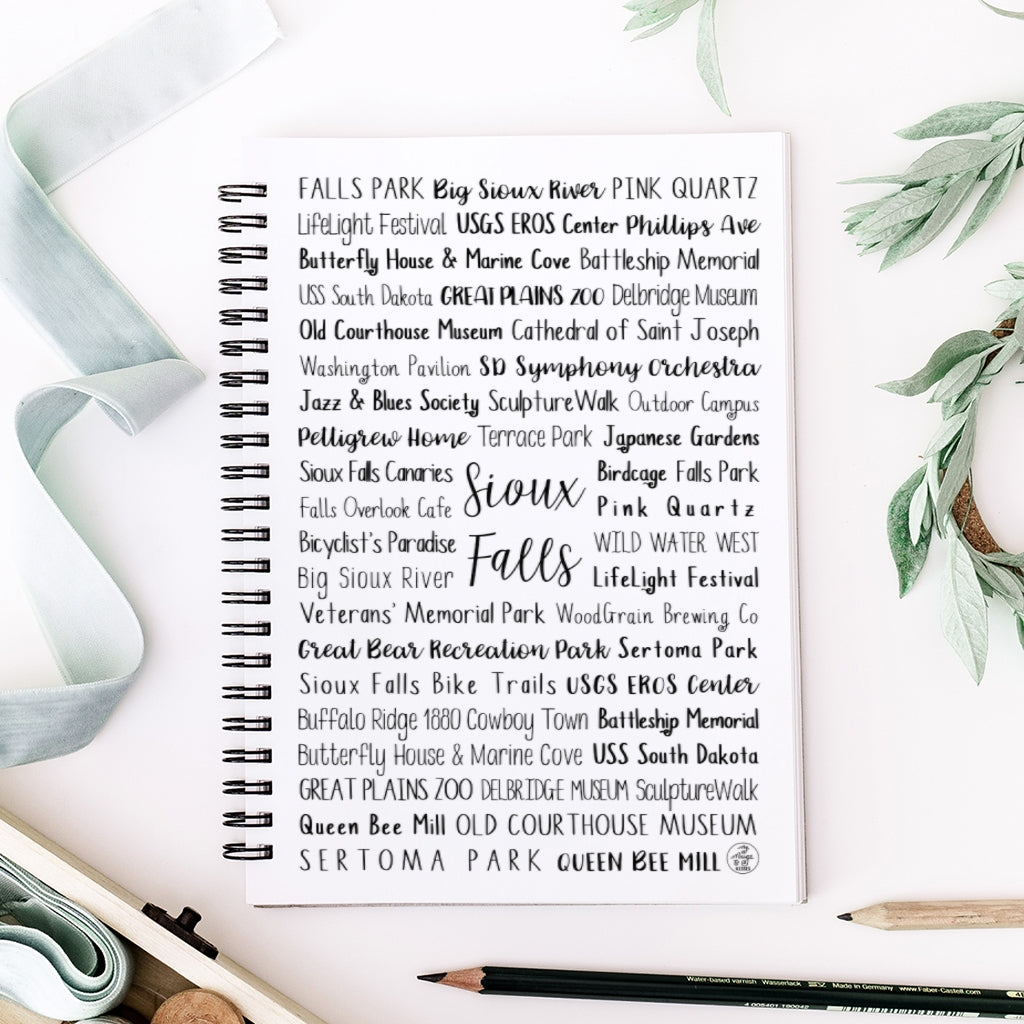 FALLS PARK Big Sioux River PINK QUARTZ
LifeLight Festival USGS EROS Center Phillips Ave
Butterfly House & Marine Cove Battleship Memorial
USS South Dakota GREAT PLAINS ZOO Delbridge Museum
Old Courthouse Museum Cathedral of Saint Joseph
Washington Pavilion SD Symphony Orchestra
Jazz & Blues Society SculptureWalk Outdoor Campus
Pettigrew Home Terrace Park Japanese Gardens
Sioux Falls Canaries Birdcage Falls Park
Sioux
Falls Overlook Cafe Pink Quartz
Bicyclist's Paradise WILD WATER WEST
Falls
Big Sioux River LifeLight Festival
Veterans' Memorial Park WoodGrain Brewing Co
Great Bear Recreation Park Sertoma Park
Sioux Falls Bike Trails USGS EROS Center
Buffalo Ridge 1880 Cowboy Town Battleship Memorial
Butterfly House & Marine Cove USS South Dakota
GREAT PLAINS ZOO DELBRIDGE MUSEUM SculptureWalk
Queen Bee Mill OLD COURTHOUSE MUSEUM
SERTOMA PARK QUEEN BEE MILL
Water-based varnish Wasserlack Made in Germany www.Faber-Castell.com